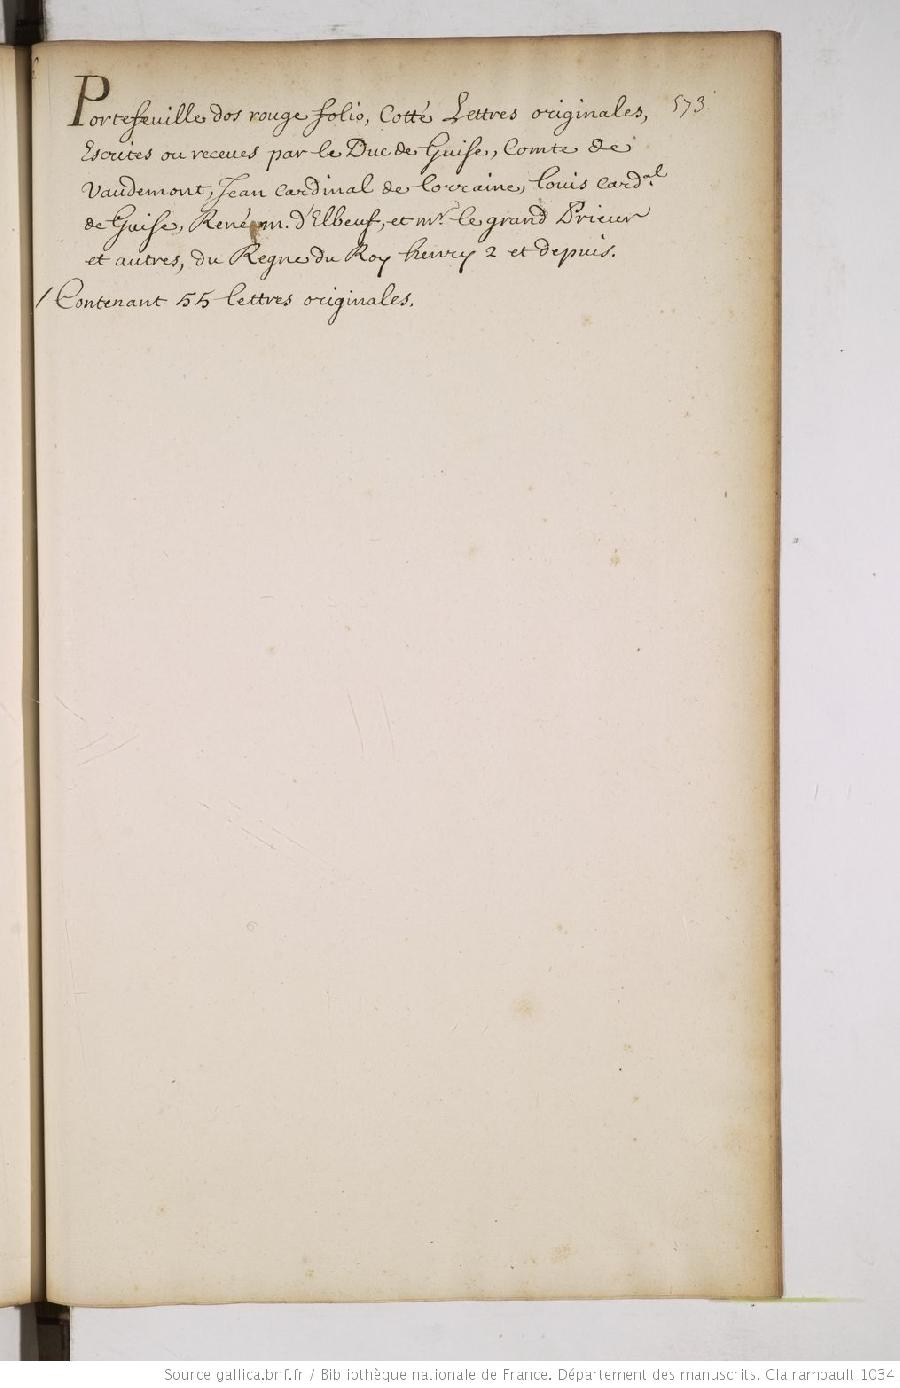 573
Portefeuille dos rouge folio, Cotté Lettres originales,
Escrites ou receues par le Duc de Guise, Comte de
Vaudemont, Jean Cardinal de Lorraine, Louis Card.al
de Guise, René m. d'Elbeuf, et mr. le grand Prieur
et autres, du Regne du Roy henry 2 et depuis.
/ Contenant 55 lettres originales.
Source gallica.bnf.fr / Bibliothèque nationale de France. Département des manuscrits. Clairambault 1034